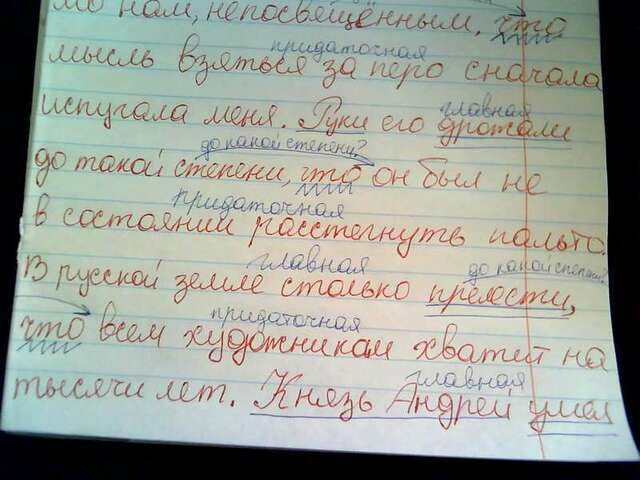 мо нам, непосвещённым, что
придаточная
мысль взяться за перо сначала
испугала меня. Руки его дрожали
главная
до какой степени?
до такой степени, что он был не
придаточная
в состоянии расстегнуть пальто.
главная
до какой степени?
В русской земле столько прелести,
придаточная
что всем художникам хватит на
главная
тысячи лет. Князь Андрей умел